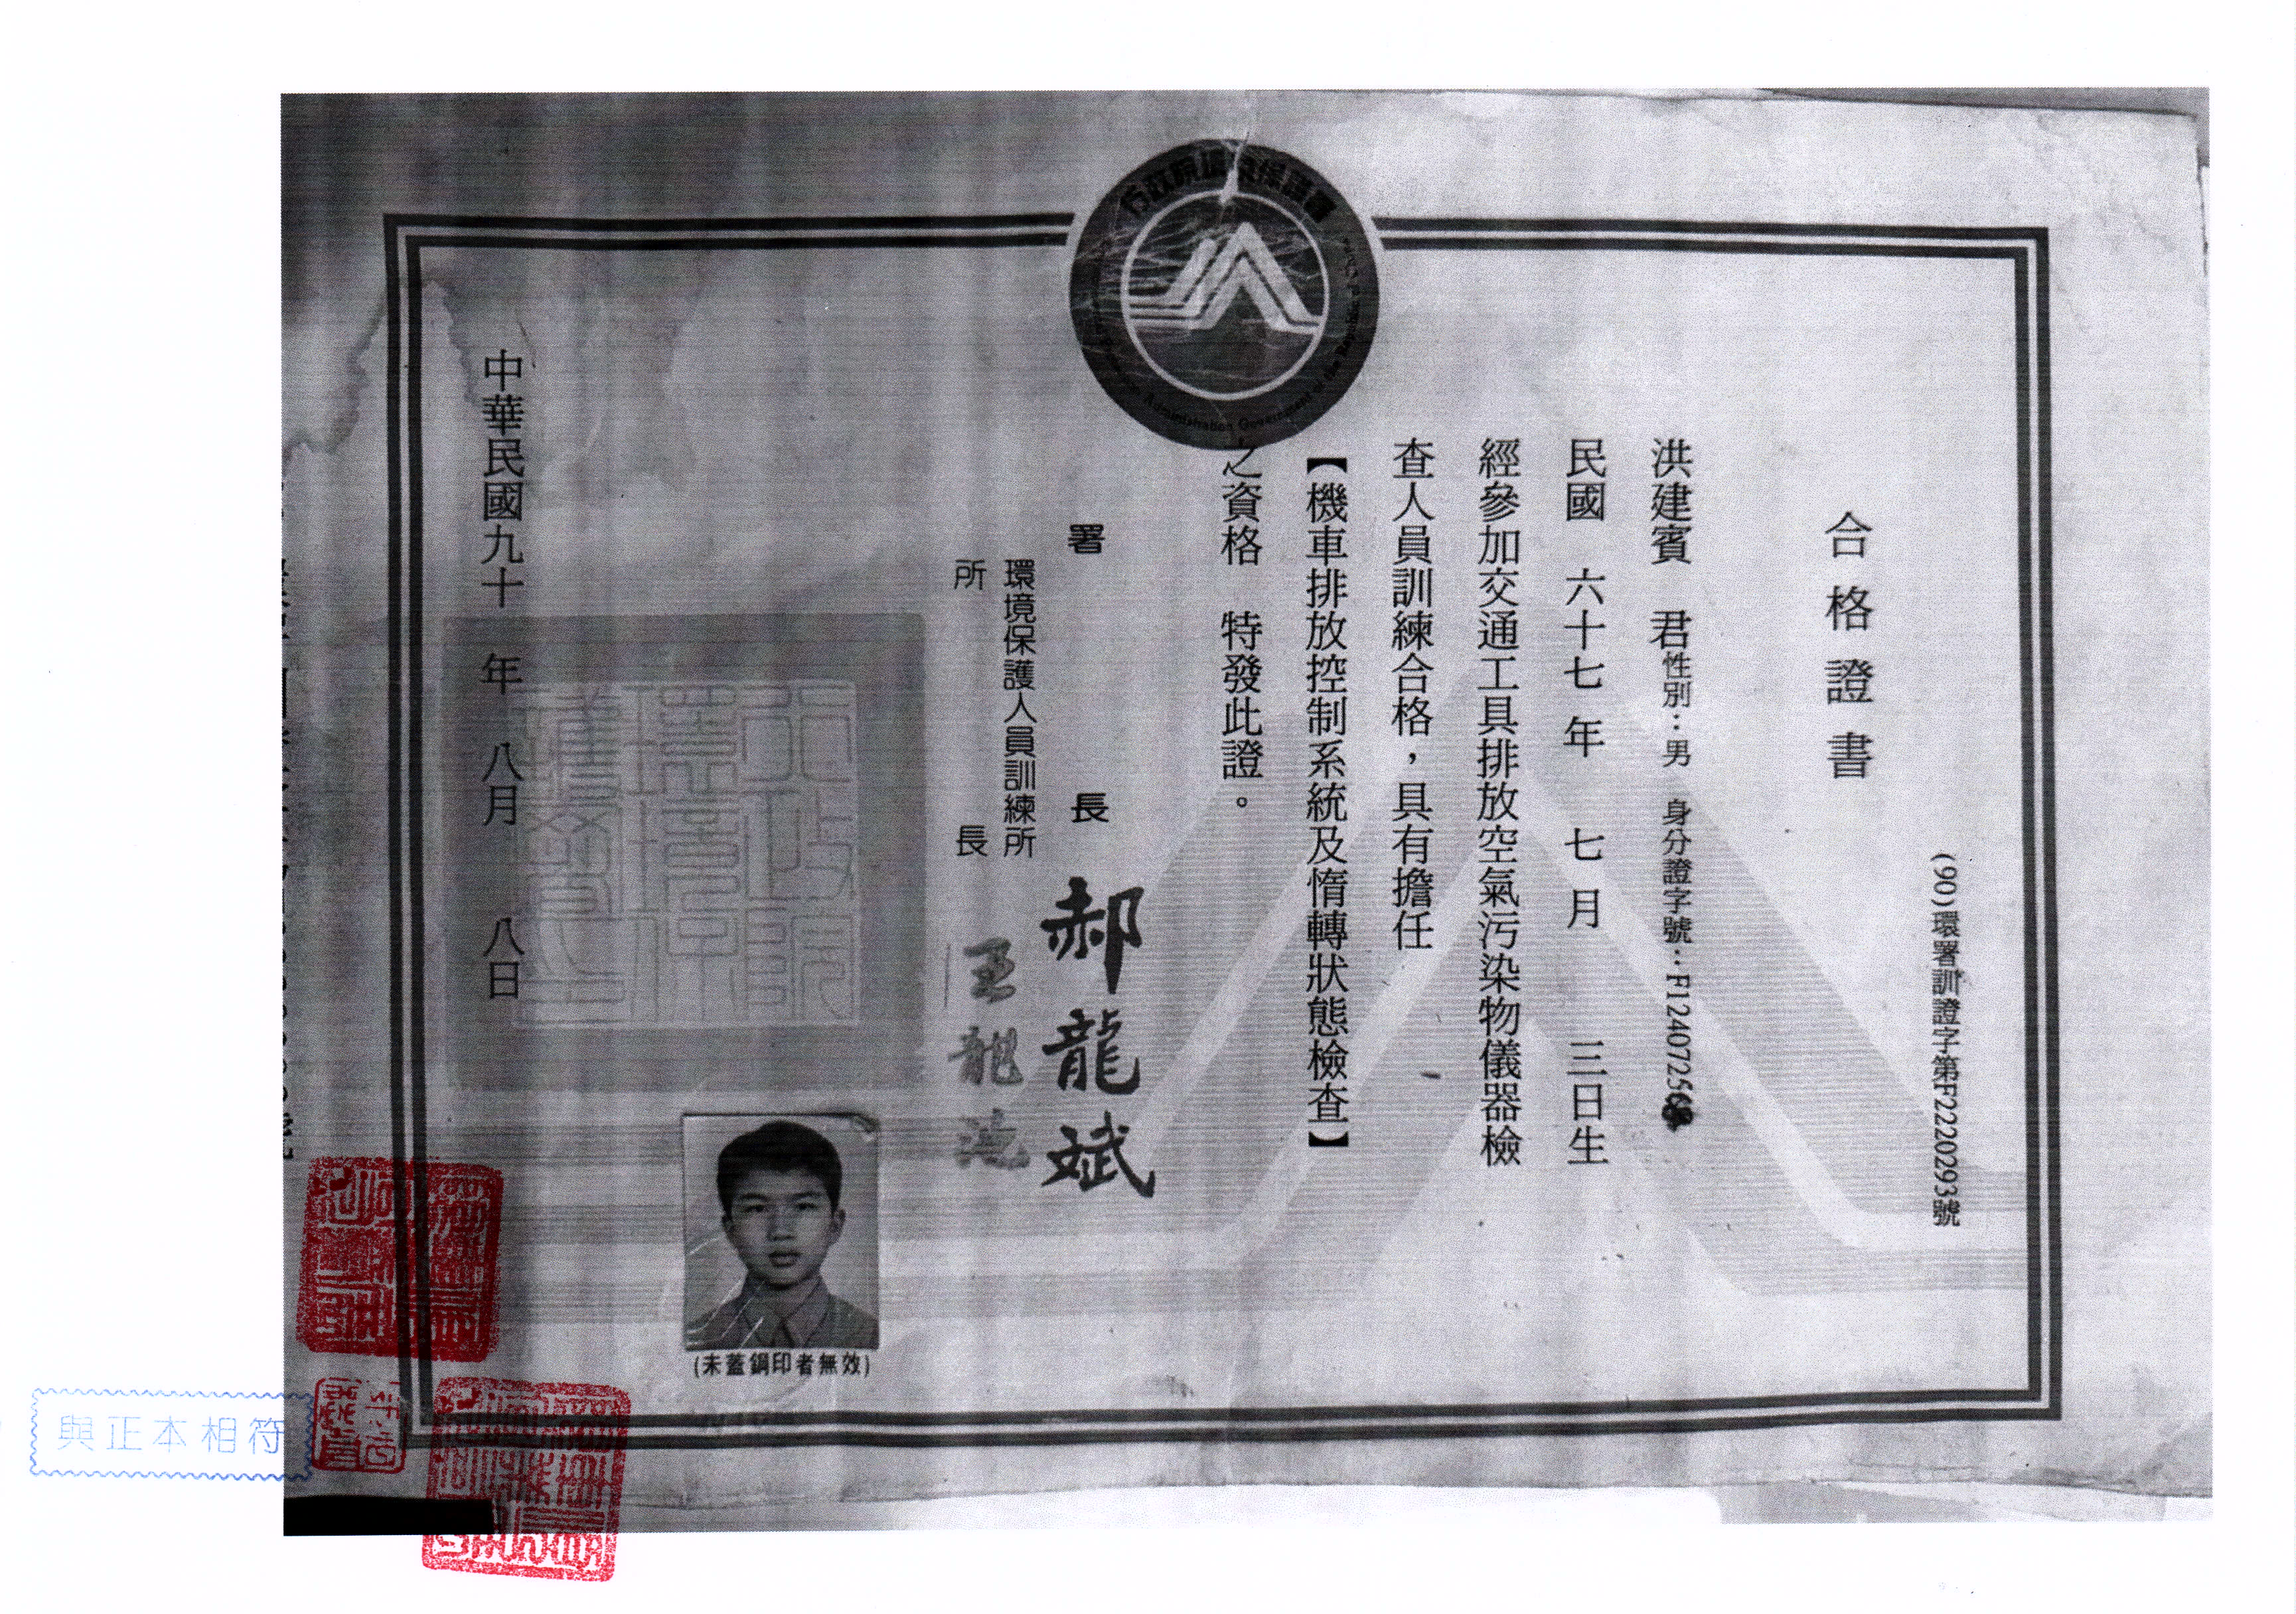 行政院環境保護署
(90)環署訓證字第F2220293號
合格證書
洪建賓 君性別：男 身分證字號：F124072568
民國 六十七年 七月 三日生
經參加交通工具排放空氣污染物儀器檢
查人員訓練合格，具有擔任
【機車排放控制系統及惰轉狀態檢查】
之資格 特發此證。
署 長 郝龍斌
環境保護人員訓練所
所 長
中華民國九十 年 八月 八日
(未蓋鋼印者無效)
與正本相符